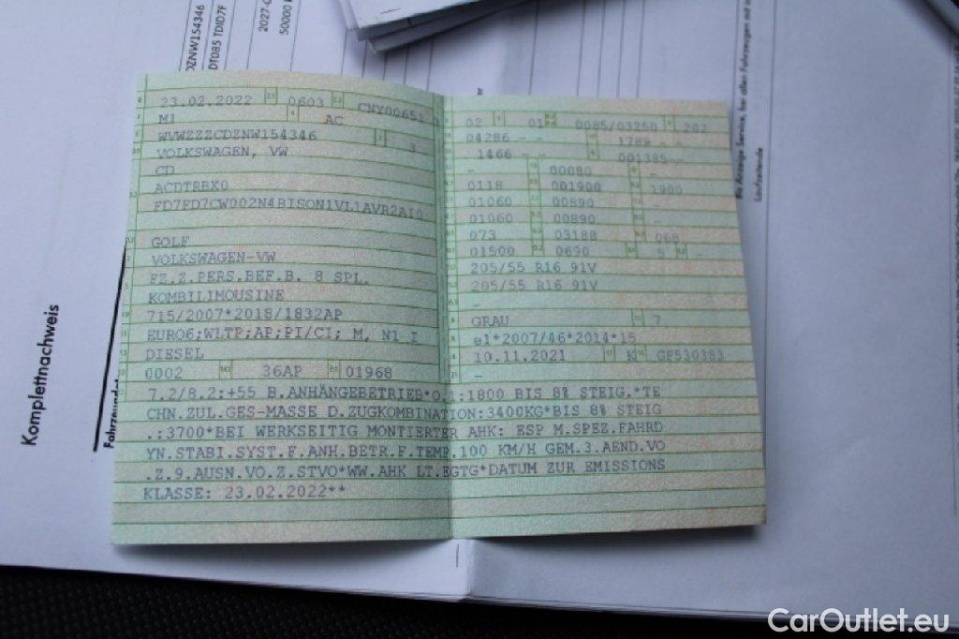 DZNW154346
DT085 TDID7F
2027-0
50000 K
Bis Anzeige Service, bei allen Fahrzeugen mit
Laufzeitende
Komplettnachweis
23.02.2022 0603 CNY00651
M1 AC
WVWZZZCDZNW154346 3
VOLKSWAGEN, VW
CD
ACDTRBX0
FD7FD7CW002N4BISON1VL1AVR2AI0
GOLF
VOLKSWAGEN-VW
FZ.Z.PERS.BEF.B. 8 SPL.
KOMBILIMOUSINE
715/2007*2018/1832AP
EURO6;WLTP;AP;PI/CI; M, N1 I
DIESEL
0002 36AP 01968
02 01 0085/03250 202
04286 - - 1789 - -
1466 - 001385--
- 00080 -
0118 001900 1900
01060 00890 -
01060 00890 -
073 03188 068
01500 0690 5 -
205/55 R16 91V
205/55 R16 91V
-
GRAU 7
e1*2007/46*2014*15
10.11.2021 K GP530383
-
7.2/8.2:+55 B.ANHÄNGEBETRIEB*O.1:1800 BIS 8% STEIG.*TE
CHN.ZUL.GES-MASSE D.ZUGKOMBINATION:3400KG*BIS 8% STEIG
.:3700*BEI WERKSEITIG MONTIERTER AHK: ESP M.SPEZ.FAHRD
YN.STABI.SYST.F.ANH.BETR.F.TEMP.100 KM/H GEM.3.AEND.VO
.Z.9.AUSN.VO.Z.STVO*WW.AHK LT.EGTG*DATUM ZUR EMISSIONS
KLASSE: 23.02.2022**
CarOutlet.eu